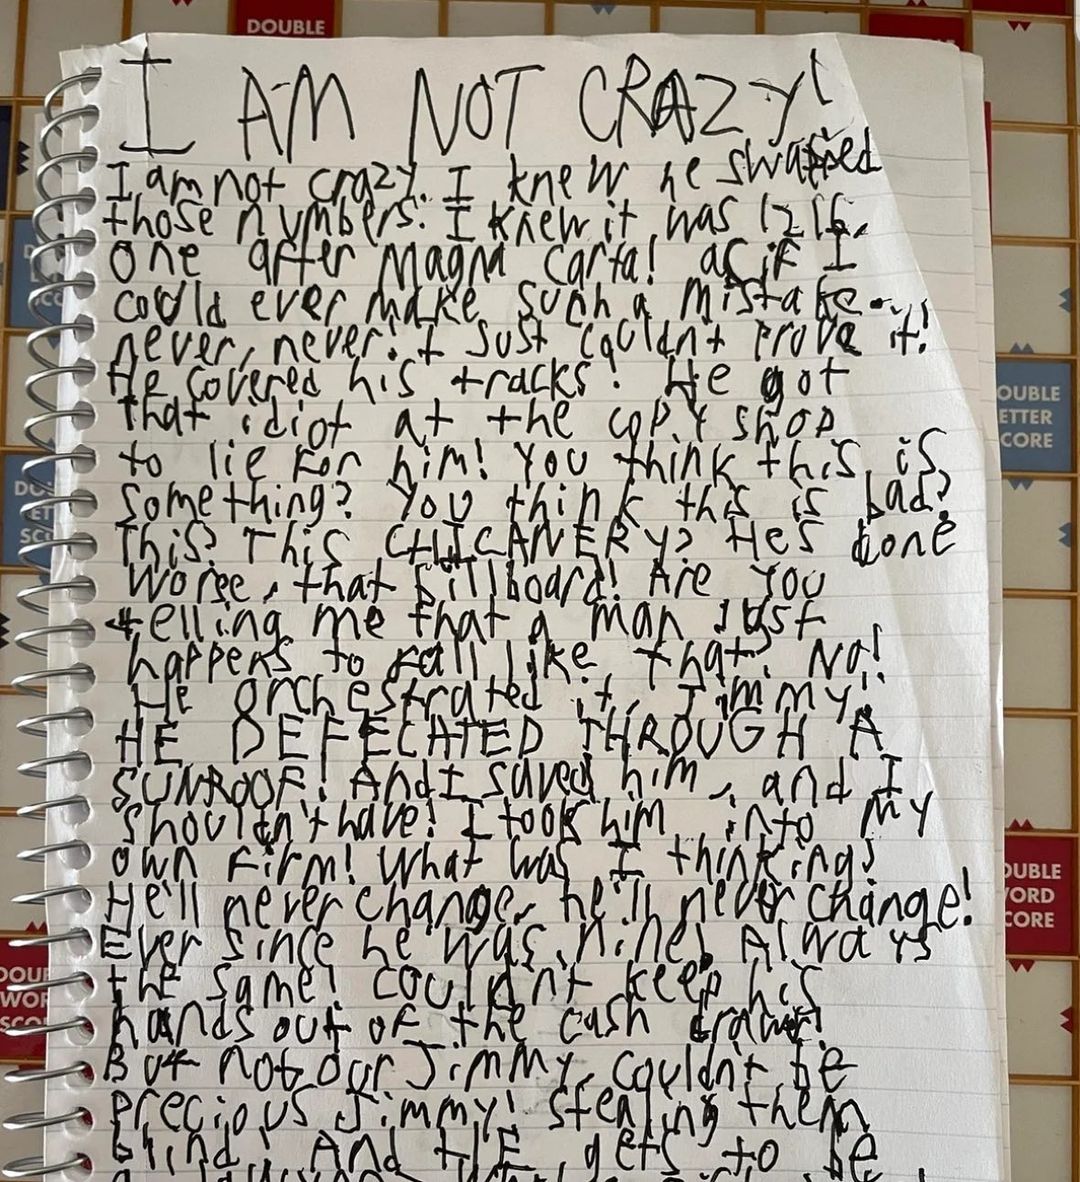 DOUBLE
I AM NOT CRAZY!
I am not crazy. I knew he swapped
those numbers. I knew it was 1216.
one after Magna carta! as if I
could ever make such a mistake.
never, never! I Just couldn't prove it!
He covered his tracks! He got
that idiot at the copy shop
to lie for him! You think this is
something? You think this is bad?
This? This CHICANERY? He's done
worse, that billboard! Are you
telling me that a man just
happens to fall like that? No!
He orchestrated it, Jimmy!
HE DEFECATED THROUGH A
SUNROOF! And I saved him, and I
shouldn't have! I took him into my
own firm! What was I thinking?
He'll never change, he'll never change!
Ever since he was nine! Always
the same! couldn't keep his
hands out of the cash drawer!
But not our Jimmy, couldn't be
precious Jimmy! stealing them
blind! And HE gets to be
OUBLE
ETTER
CORE
OUBLE
WORD
CORE
DOUB
WOR
SCO